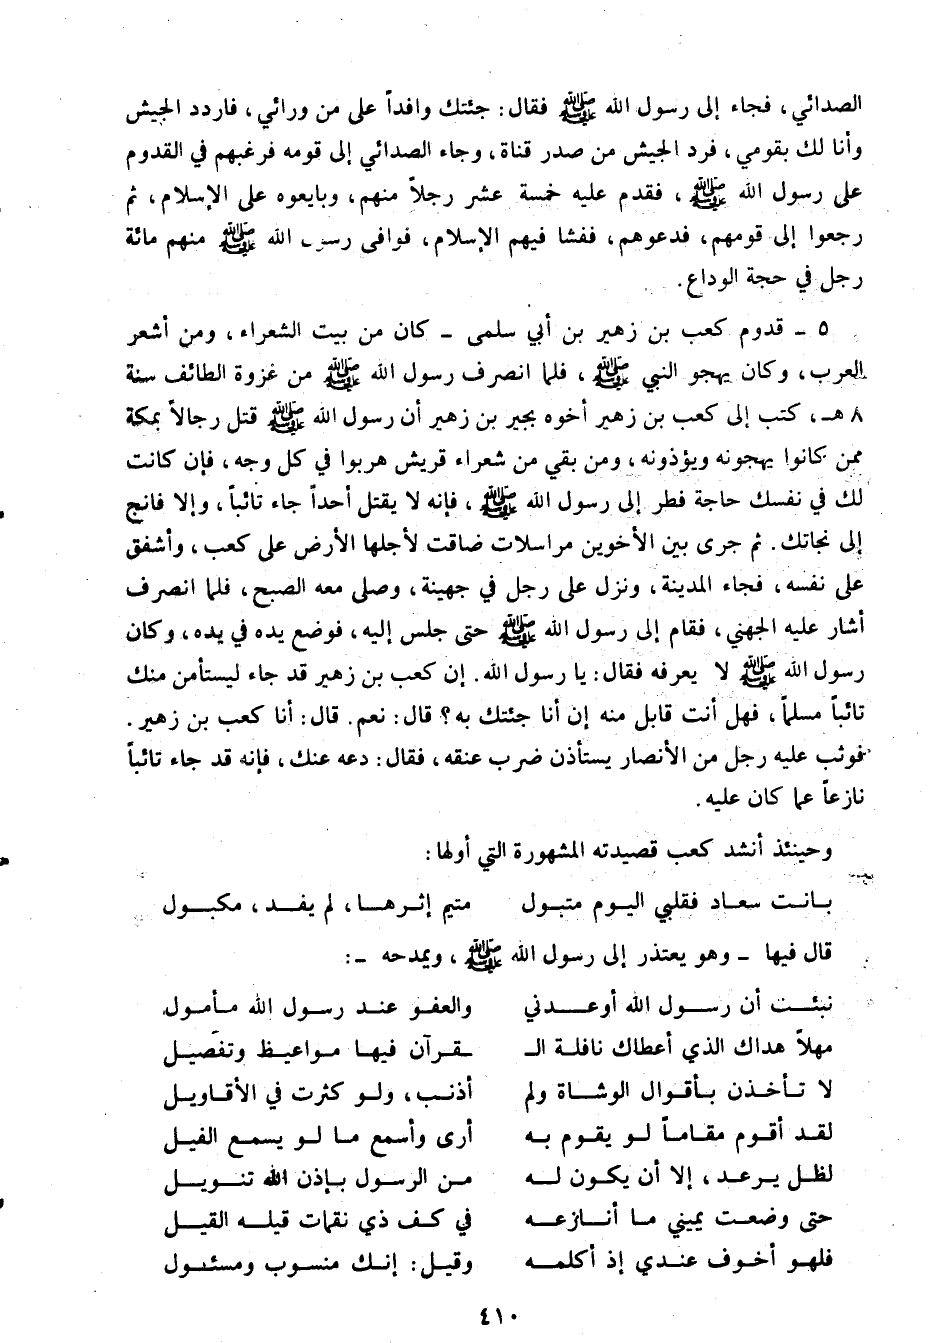 الصدائي، فجاء إلى رسول الله ﷺ فقال: جئتك وافداً على من ورائي، فاردد الجيش
وأنا لك بقومي، فرد الجيش من صدر قناة، وجاء الصدائي إلى قومه فرغبهم في القدوم
على رسول الله ﷺ، فقدم عليه خمسة عشر رجلاً منهم، وبايعوه على الإسلام، ثم
رجعوا إلى قومهم، فدعوهم، ففشا فيهم الإسلام، فوافى رسول الله ﷺ منهم مائة
رجل في حجة الوداع.
٥ - قدوم كعب بن زهير بن أبي سلمى - كان من بيت الشعراء، ومن أشعر
العرب، وكان يهجو النبي ﷺ، فلما انصرف رسول الله ﷺ من غزوة الطائف سنة
٨ هـ، كتب إلى كعب بن زهير أخوه بجير بن زهير أن رسول الله ﷺ قتل رجالاً بمكة
ممن كانوا يهجونه ويؤذونه، ومن بقي من شعراء قريش هربوا في كل وجه، فإن كانت
لك في نفسك حاجة فطر إلى رسول الله ﷺ، فإنه لا يقتل أحداً جاء تائباً، وإلا فانج
إلى نجاتك. ثم جرى بين الأخوين مراسلات ضاقت لأجلها الأرض على كعب، وأشفق
على نفسه، فجاء المدينة، ونزل على رجل في جهينة، وصلى معه الصبح، فلما انصرف
أشار عليه الجهني، فقام إلى رسول الله ﷺ حتى جلس إليه، فوضع يده في يده، وكان
رسول الله ﷺ لا يعرفه فقال: يا رسول الله. إن كعب بن زهير قد جاء ليستأمن منك
تائباً مسلماً، فهل أنت قابل منه إن أنا جئتك به؟ قال: نعم. قال: أنا كعب بن زهير.
فوثب عليه رجل من الأنصار يستأذن ضرب عنقه، فقال: دعه عنك، فإنه قد جاء تائباً
نازعاً عما كان عليه.
وحينئذ أنشد كعب قصيدته المشهورة التي أولها:
بانت سعاد فقلبي اليوم متبول متيم إثرها، لم يفد، مكبول
قال فيها - وهو يعتذر إلى رسول الله ﷺ، ويمدحه -:
نبئت أن رسول الله أوعدني والعفو عند رسول الله مأمول
مهلاً هداك الذي أعطاك نافلة الـ ـقرآن فيها مواعيظ وتفصيل
لا تأخذن بأقوال الوشاة ولم أذنب، ولو كثرت في الأقاويل
لقد أقوم مقاماً لو يقوم به أرى وأسمع ما لو يسمع الفيل
لظل يرعد، إلا أن يكون له من الرسول بإذن الله تنويل
حتى وضعت يميني ما أنازعه في كف ذي نقمات قيله القيل
فلهو أخوف عندي إذ أكلمه وقيل: إنك منسوب ومسئول
٤١٠